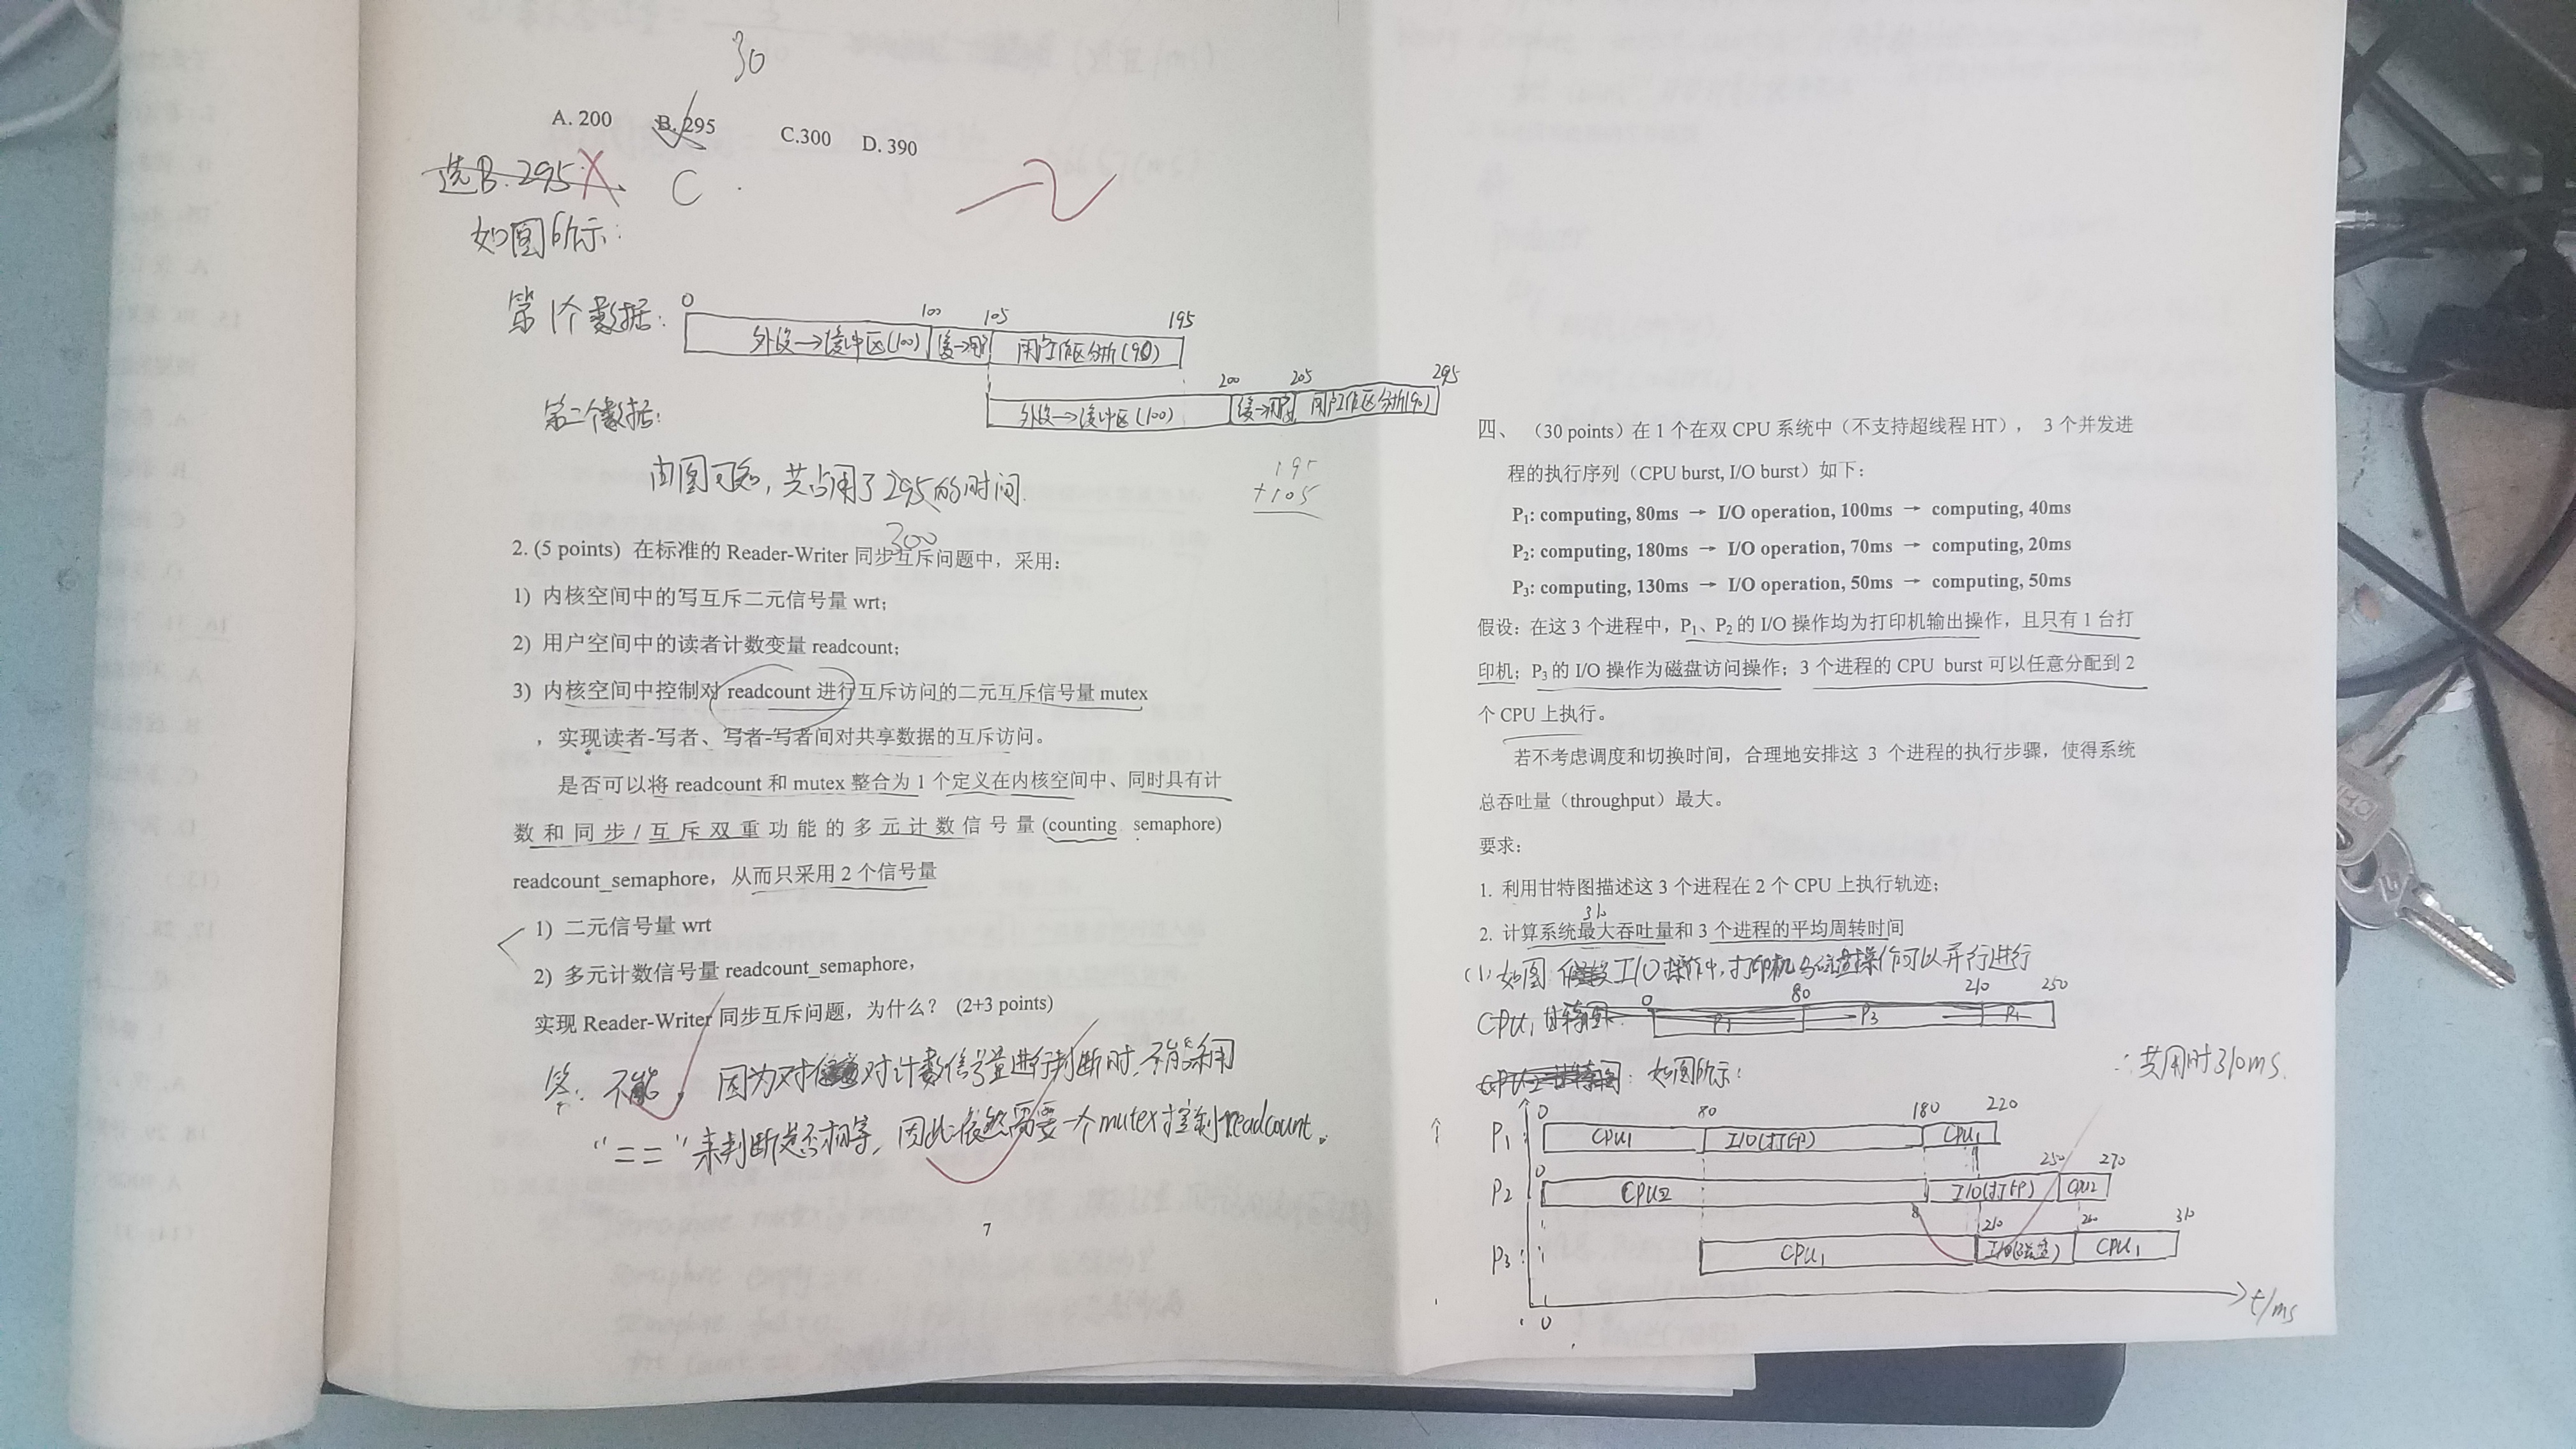 30
A. 200 B. 295 C.300 D. 390
选B. 295 C
如图所示:
第1个数据:
0 100 105 195
外设→缓冲区(100) 缓→用户 用户工作区分析(90)
第二个数据:
200 205 295
外设→缓冲区(100) 缓→用户 用户工作区分析(90)
由图可知, 共占用了295的时间.
300
195
+105
2. (5 points) 在标准的 Reader-Writer 同步互斥问题中，采用:
1) 内核空间中的写互斥二元信号量 wrt;
2) 用户空间中的读者计数变量 readcount;
3) 内核空间中控制对 readcount 进行互斥访问的二元互斥信号量 mutex
，实现读者-写者、写者-写者间对共享数据的互斥访问。
是否可以将 readcount 和 mutex 整合为 1 个定义在内核空间中、同时具有计
数和同步/互斥双重功能的多元计数信号量(counting semaphore)
readcount_semaphore，从而只采用 2 个信号量
1) 二元信号量 wrt
2) 多元计数信号量 readcount_semaphore,
实现 Reader-Writer 同步互斥问题，为什么? (2+3 points)
答: 不能。因为对 对计数信号量进行判断时, 不能采用
“==”来判断是否相等, 因此依然需要一个mutex控制readcount。
7
四、 (30 points) 在 1 个在双 CPU 系统中（不支持超线程 HT）， 3 个并发进
程的执行序列（CPU burst, I/O burst）如下:
P1: computing, 80ms → I/O operation, 100ms → computing, 40ms
P2: computing, 180ms → I/O operation, 70ms → computing, 20ms
P3: computing, 130ms → I/O operation, 50ms → computing, 50ms
假设: 在这 3 个进程中，P1、P2 的 I/O 操作均为打印机输出操作，且只有 1 台打
印机；P3 的 I/O 操作为磁盘访问操作；3 个进程的 CPU burst 可以任意分配到 2
个 CPU 上执行。
若不考虑调度和切换时间，合理地安排这 3 个进程的执行步骤，使得系统
总吞吐量（throughput）最大。
要求:
1. 利用甘特图描述这 3 个进程在 2 个 CPU 上执行轨迹;
310
2. 计算系统最大吞吐量和 3 个进程的平均周转时间
(1) 如图 I/O操作中, 打印机与磁盘操作可以并行进行
0 80 210 250
CPU1 甘特图: P1 P3 P1
CPU2 甘特图: 如图所示:
∴共用时310ms.
0 80 180 220
P1: CPU1 I/O(打印) CPU1
0 250 270
P2: CPU2 I/O(打印) CPU2
210 260 310
P3: CPU1 I/O(磁盘) CPU1
0 t/ms